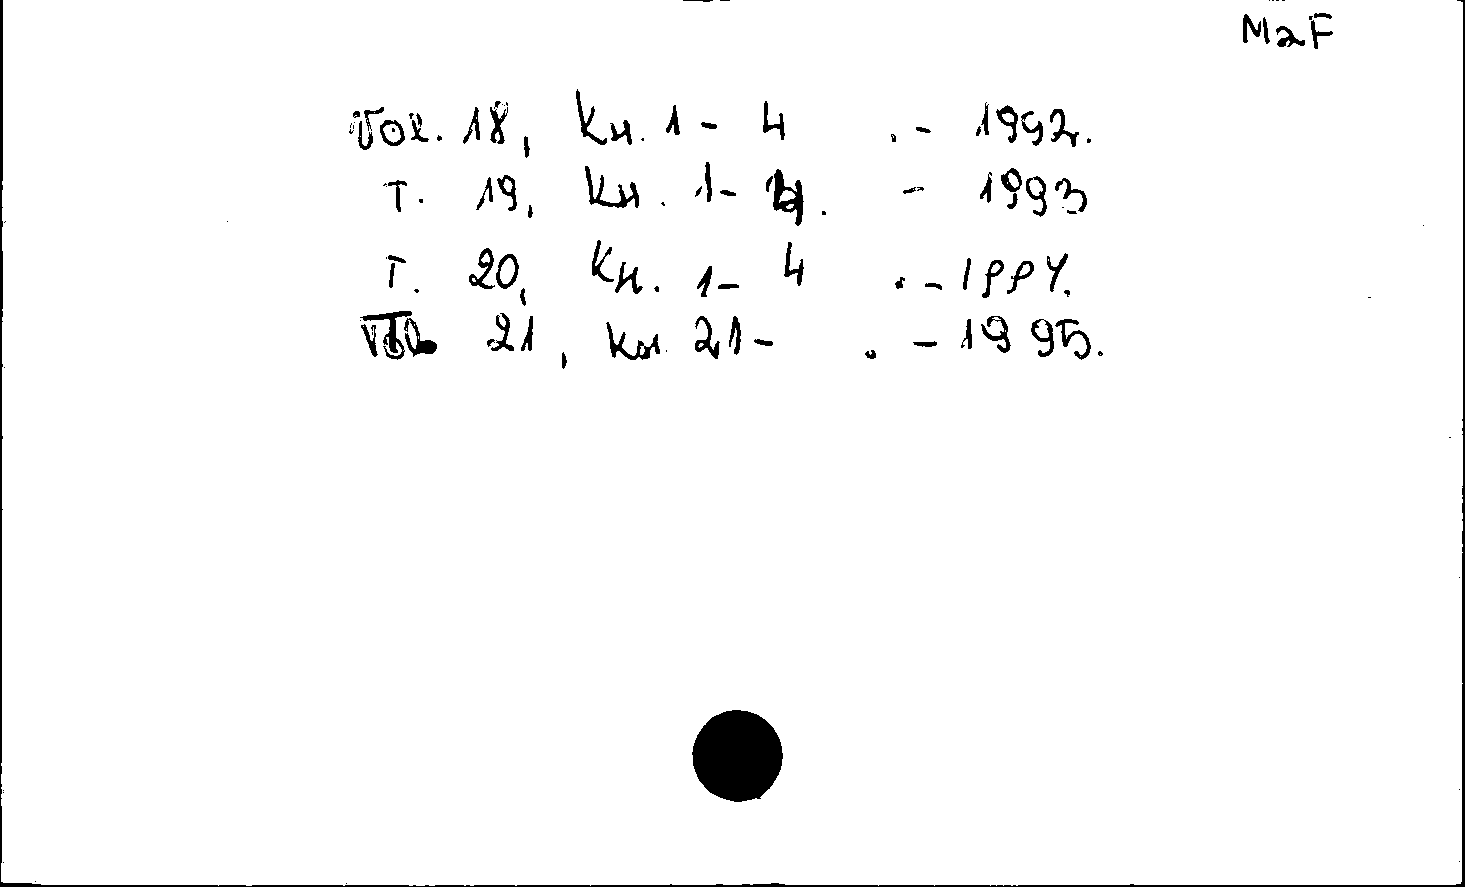 MaF
Vol. 18, Кн. 1 - 4 . - 1992.
Т. 19, Кн. 1 - 4. - 1993
Т. 20, Кн. 1 - 4 . - 1994.
21, Кн. 21 - . - 1995.